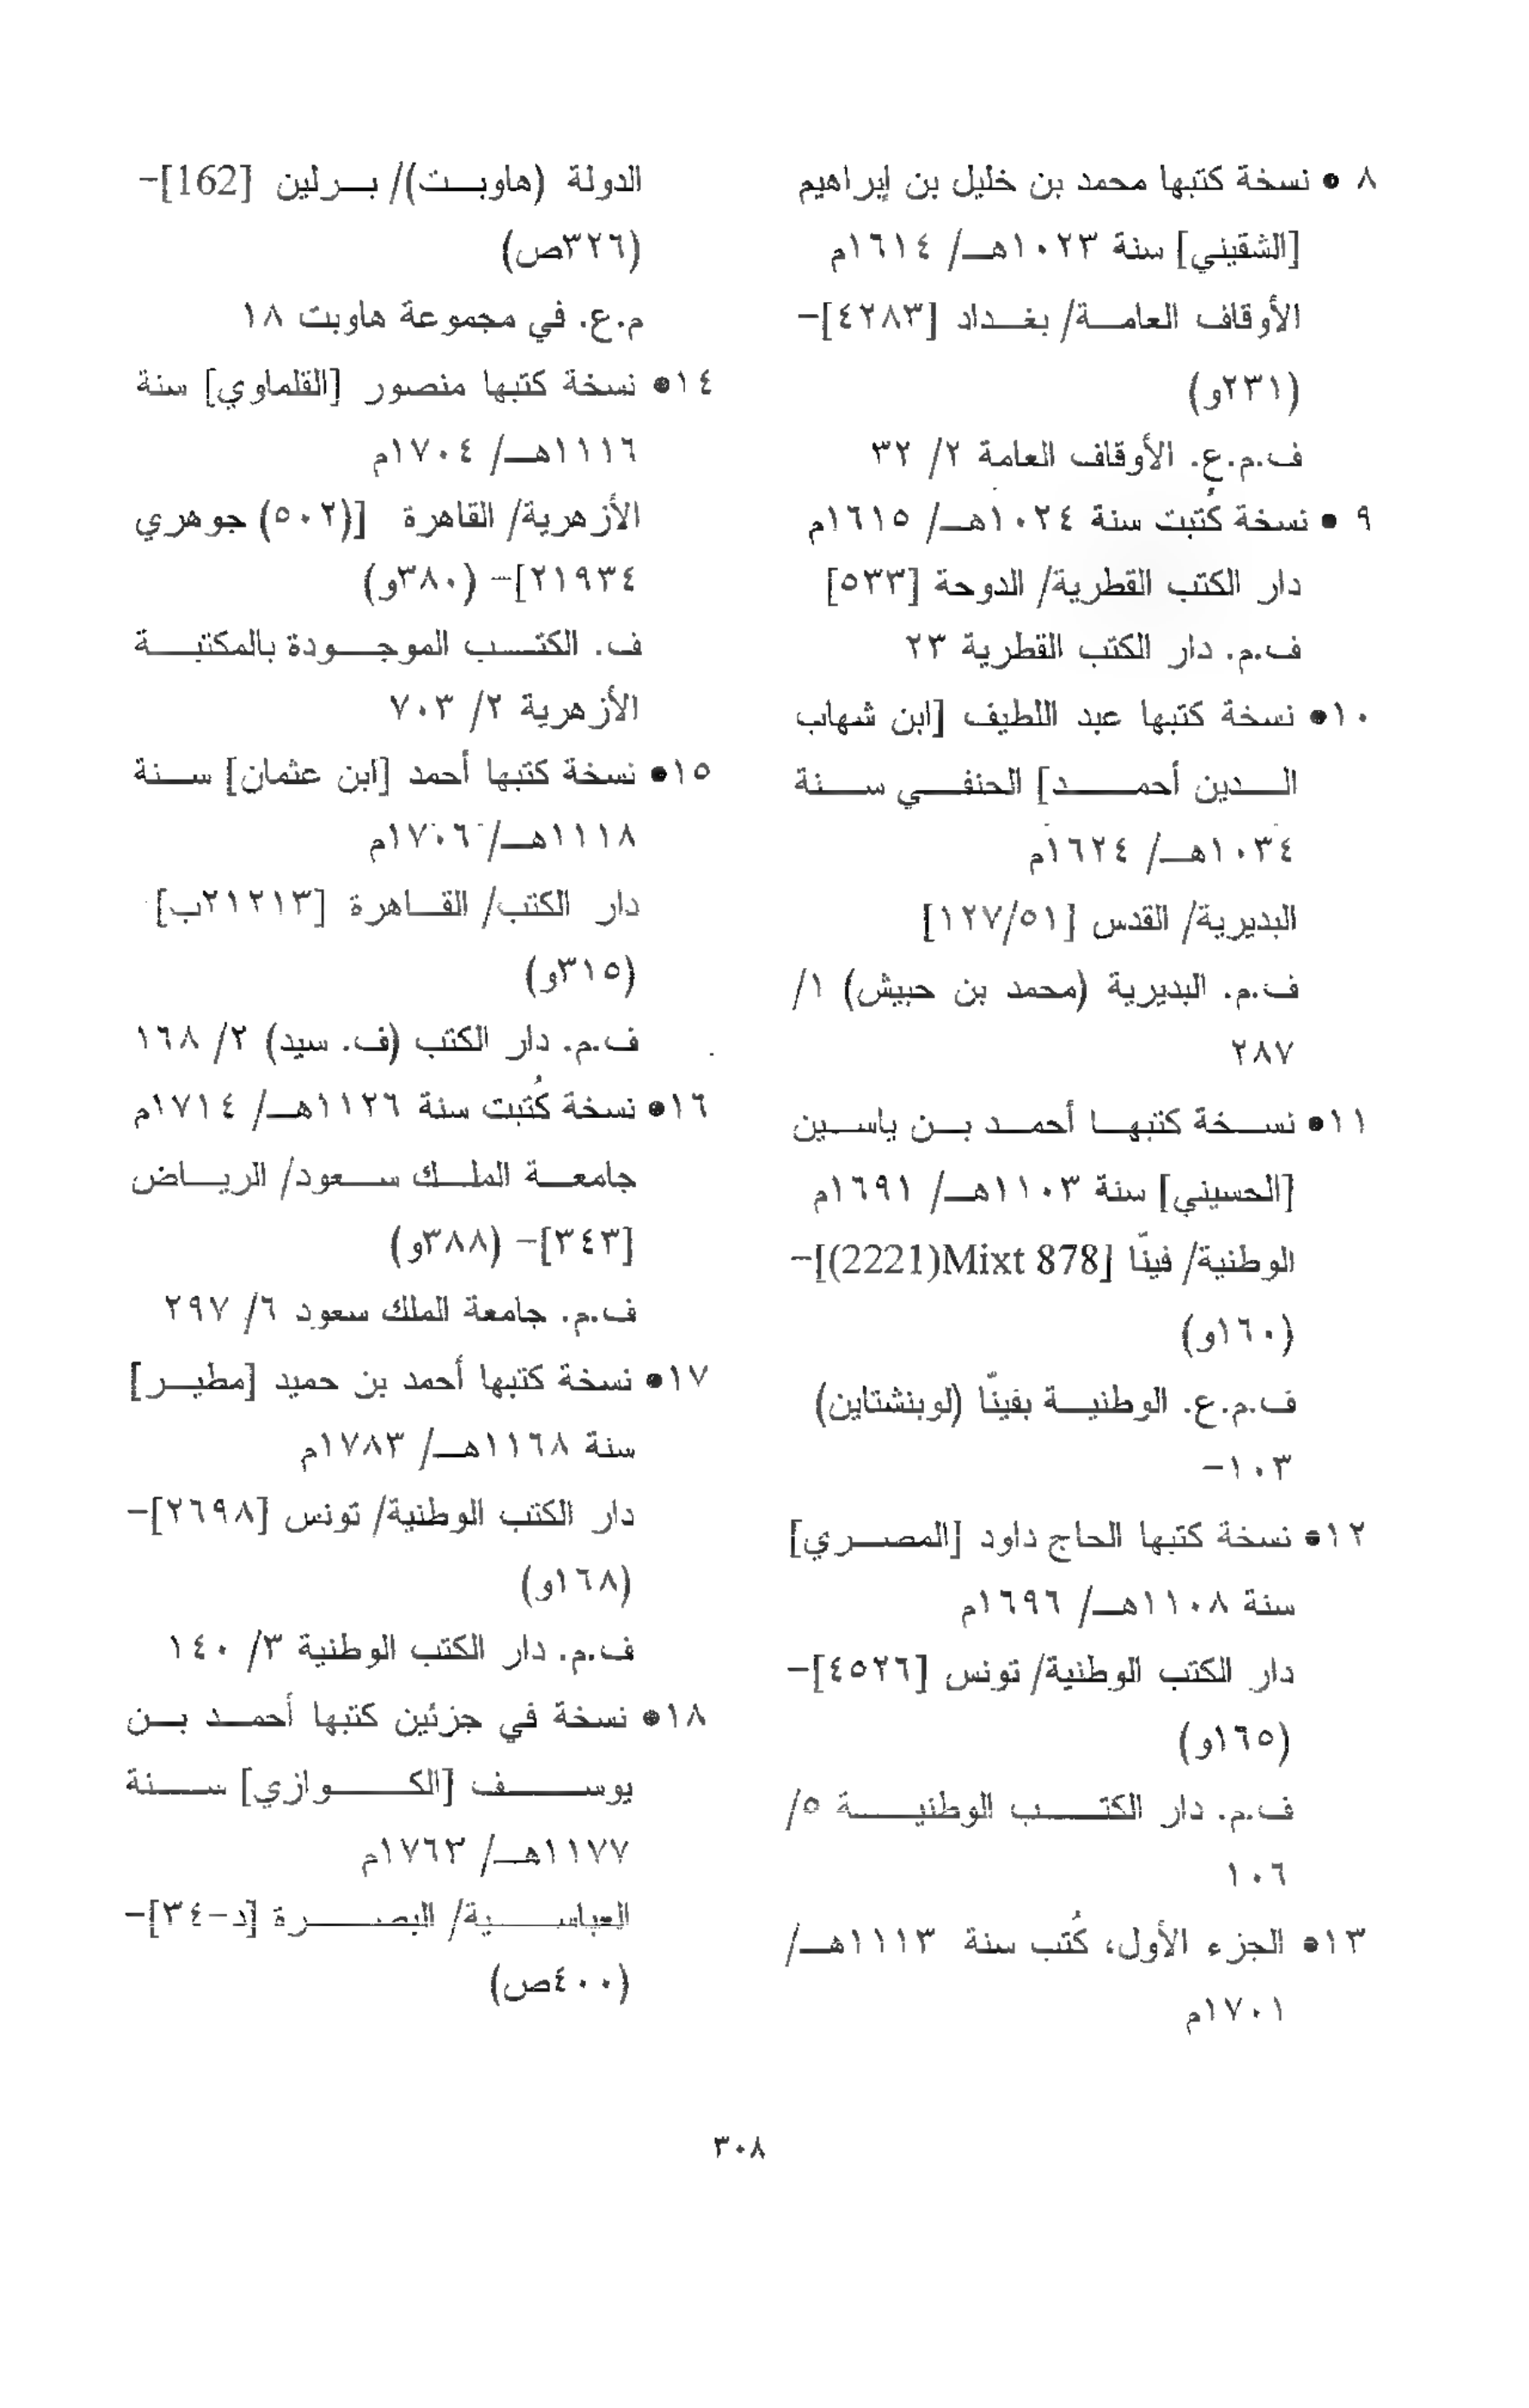 ٨ • نسخة كتبها محمد بن خليل بن إبراهيم
[الشقيني] سنة ١٠٢٣هـ/ ١٦١٤م
الأوقاف العامة/ بغداد [٤٢٨٣]-
(٢٣١و)
ف.م.ع. الأوقاف العامة ٢/ ٣٢
٩ • نسخة كُتبت سنة ١٠٢٤هـ/ ١٦١٥م
دار الكتب القطرية/ الدوحة [٥٣٣]
ف.م. دار الكتب القطرية ٢٣
١٠• نسخة كتبها عبد اللطيف [ابن شهاب
الدين أحمد] الحنفي سنة
١٠٣٤هـ/ ١٦٢٤م
البديرية/ القدس [١٢٧/٥١]
ف.م. البديرية (محمد بن حبيش) ١/
٢٨٧
١١• نسخة كتبها أحمد بن ياسين
[الحسيني] سنة ١١٠٣هـ/ ١٦٩١م
الوطنية/ فينّا [Mixt 878(2221)]-
(١٦٠و)
ف.م.ع. الوطنية بفينّا (لوبنشتاين)
١٠٣-
١٢• نسخة كتبها الحاج داود [المصري]
سنة ١١٠٨هـ/ ١٦٩٦م
دار الكتب الوطنية/ تونس [٤٥٢٦]-
(١٦٥و)
ف.م. دار الكتب الوطنية ٥/
١٠٦
١٣• الجزء الأول، كُتب سنة ١١١٣هـ/
١٧٠١م
الدولة (هاوبت)/ برلين [162]-
(٣٢٦ص)
م.ع. في مجموعة هاوبت ١٨
١٤• نسخة كتبها منصور [القلماوي] سنة
١١١٦هـ/ ١٧٠٤م
الأزهرية/ القاهرة [(٥٠٢) جوهري
٢١٩٣٤]- (٣٨٠و)
ف. الكتب الموجودة بالمكتبة
الأزهرية ٢/ ٧٠٣
١٥• نسخة كتبها أحمد [ابن عثمان] سنة
١١١٨هـ/ ١٧٠٦م
دار الكتب/ القاهرة [٢١٢١٣ب]
(٣١٥و)
ف.م. دار الكتب (ف. سيد) ٢/ ١٦٨
١٦• نسخة كُتبت سنة ١١٢٦هـ/ ١٧١٤م
جامعة الملك سعود/ الرياض
[٣٤٣]- (٣٨٨و)
ف.م. جامعة الملك سعود ٦/ ٢٩٧
١٧• نسخة كتبها أحمد بن حميد [مطير]
سنة ١١٦٨هـ/ ١٧٨٣م
دار الكتب الوطنية/ تونس [٢٦٩٨]-
(١٦٨و)
ف.م. دار الكتب الوطنية ٣/ ١٤٠
١٨• نسخة في جزئين كتبها أحمد بن
يوسف [الكوازي] سنة
١١٧٧هـ/ ١٧٦٣م
العباسية/ البصرة [د-٣٤]-
(٤٠٠ص)
٣٠٨